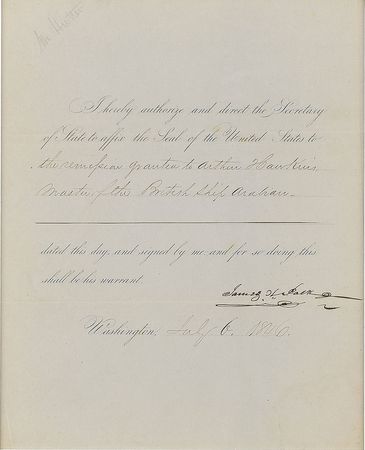 Mr Hunter
I hereby authorize and direct the Secretary
of State to affix the Seal of the United States to
the remission granted to Arthur Hawkins
Master of the British Ship
dated this day, and signed by me and for so doing this
shall be his warrant.
James K. Polk
Washington, July 6. 1846.